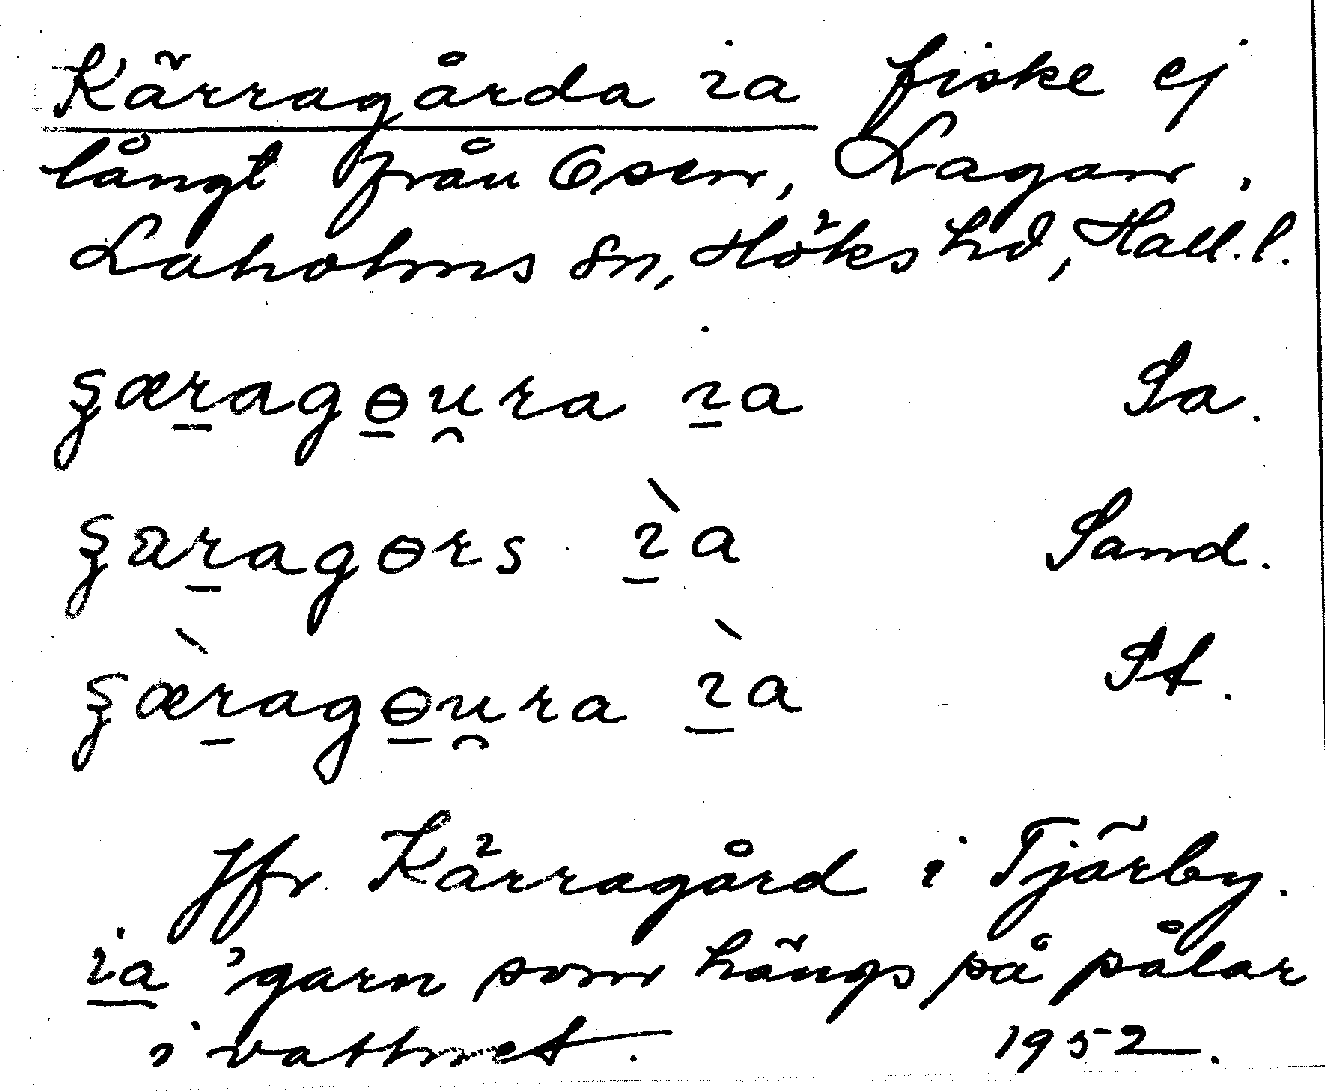 Kärragårda ia fiske ej
långt från Osen, Lagan.
Laholms sn, Höks hd, Hall. l.
ʂæragɵu̯ra ia Sa.
ʂaragɵrs ìa Sand.
ʂæ̀ragɵu̯ra ìa St.
Jfr Kärragård i Tjärby.
ia 'garn som hängs på pålar
i vattnet. 1952.